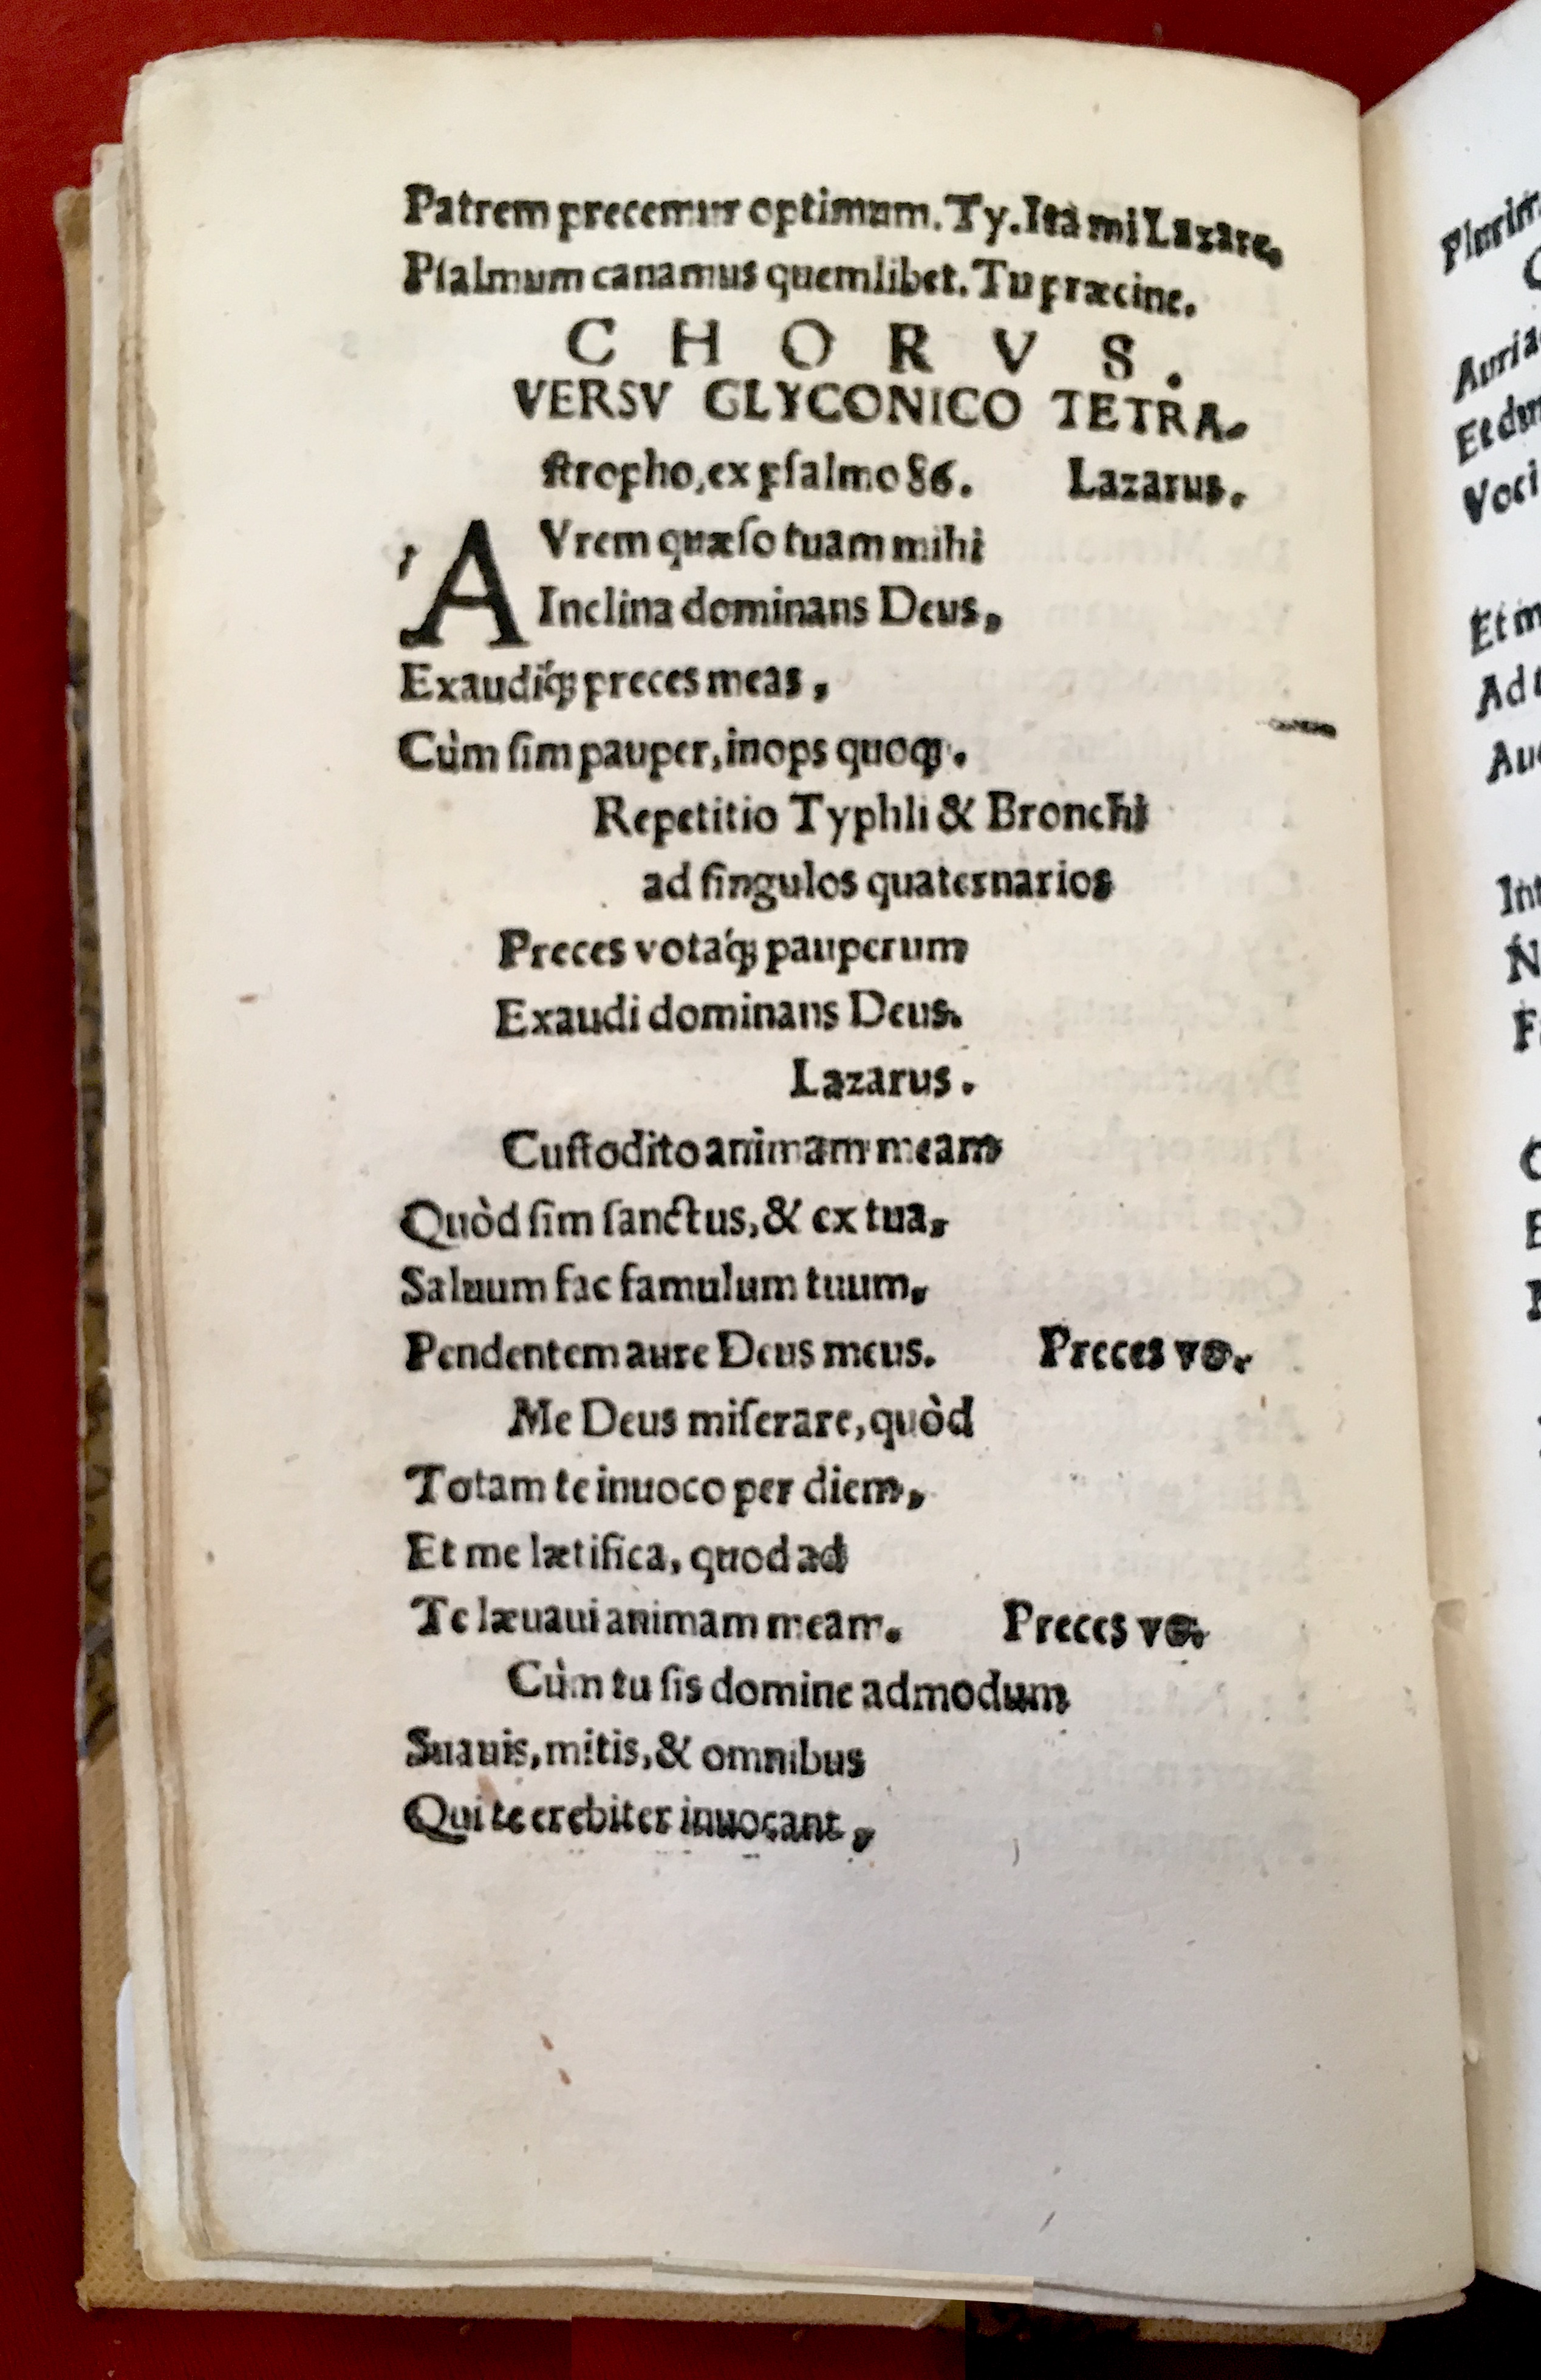 Patrem precemur optimum. Ty. Ità mi Lazare.
Pſalmum canamus quemlibet. Tu præcine.
CHORVS.
VERSV GLYCONICO TETRA-
ſtropho, ex pſalmo 86. Lazarus.
AVrem quæſo tuam mihi
Inclina dominans Deus,
Exaudíq; preces meas,
Cùm ſim pauper, inops quoq;.
Repetitio Typhli & Bronchi
ad ſingulos quaternarios
Preces votáq; pauperum
Exaudi dominans Deus.
Lazarus.
Cuſtodito animam meam
Quòd ſim ſanctus, & ex tua,
Saluum fac famulum tuum,
Pendentem aure Deus meus. Preces vo.
Me Deus miſerare, quòd
Totam te inuoco per diem,
Et me lætifica, quod ad
Te læuaui animam meam. Preces vo.
Cùm tu ſis domine admodum
Suauis, mitis, & omnibus
Qui te crebiter inuocant,
Plurim
Auria
Et du
Voci
Et m
Ad t
Au
Int
N
F